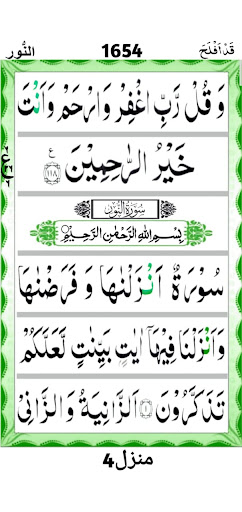 النُّور 1654 قَدْ اَفْلَحَ
وَ قُلْ رَّبِّ اغْفِرْ وَارْحَمْ وَاَنْتَ
خَيْرُ الرّٰحِمِيْنَ ع ۝۱۱۸
سُوْرَةُ النُّوْرِ
بِسْمِ اللّٰهِ الرَّحْمٰنِ الرَّحِيْمِ
سُوْرَةٌ اَنْزَلْنٰهَا وَ فَرَضْنٰهَا
وَاَنْزَلْنَا فِيْهَاۤ اٰيٰتٍۭ بَيِّنٰتٍ لَّعَلَّكُمْ
تَذَكَّرُوْنَ ۝۱ اَلزَّانِيَةُ وَ الزَّانِىْ
منزل4